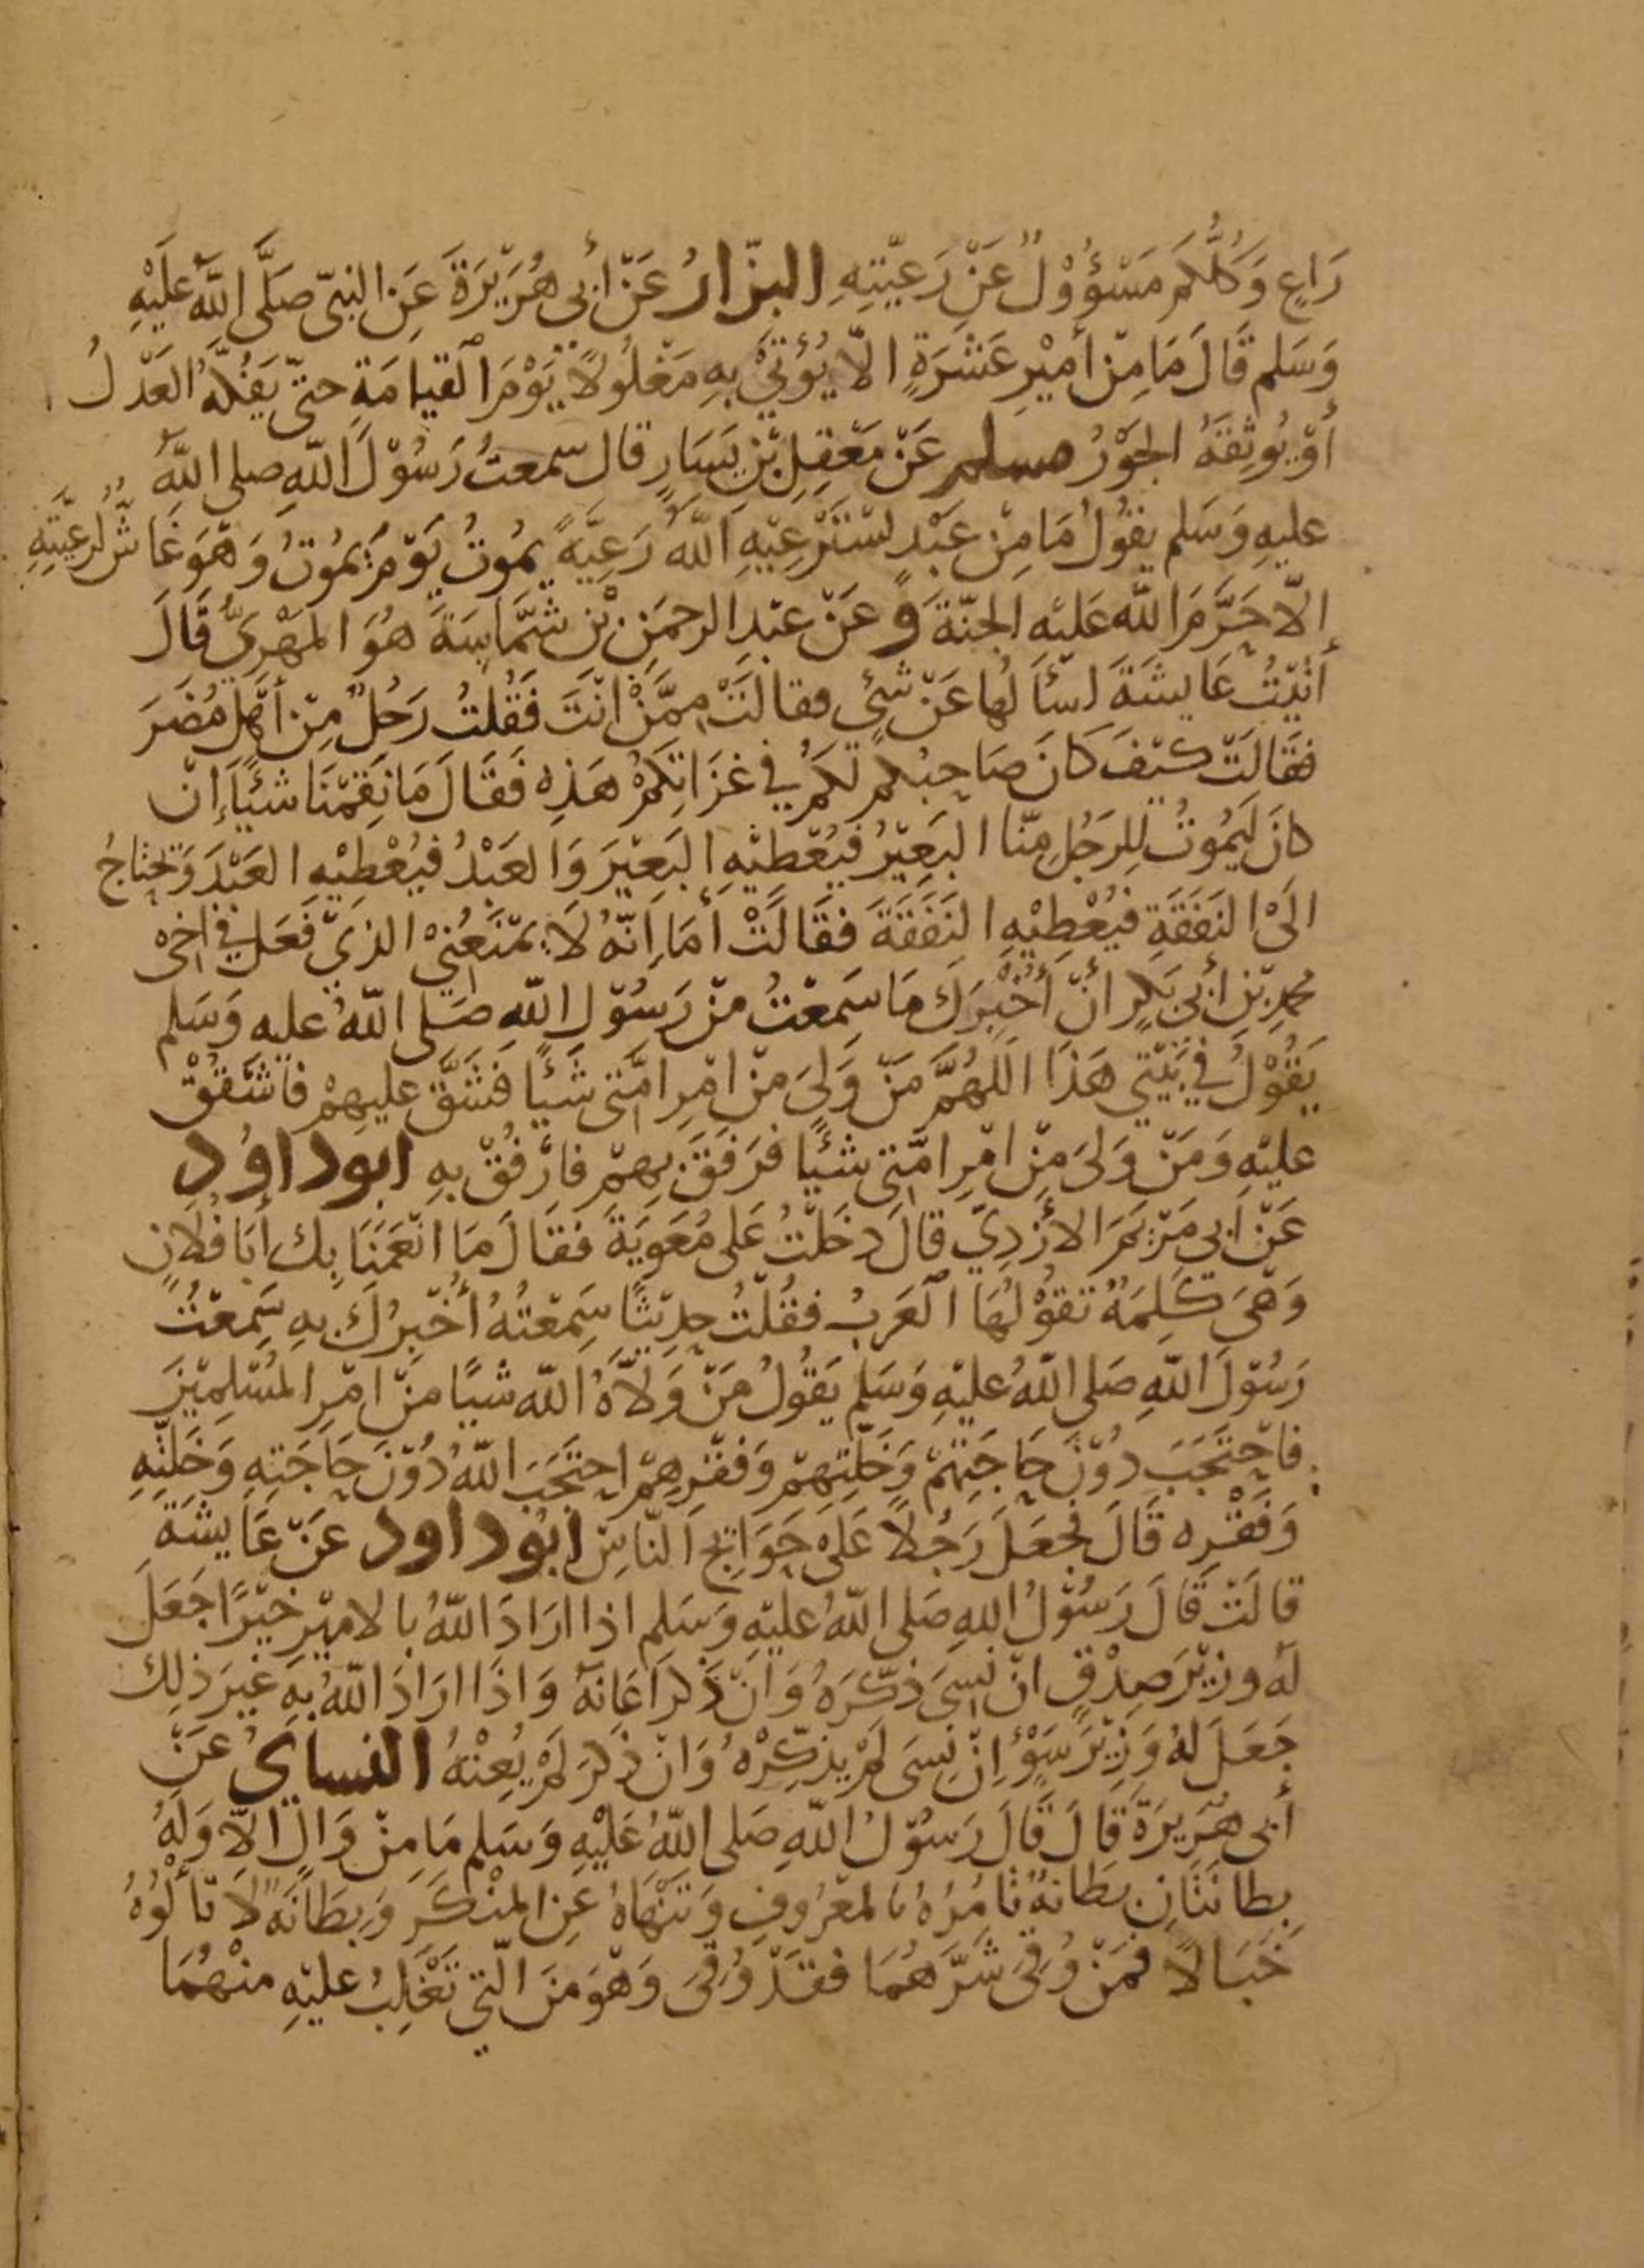 رَاعٍ وَكُلُّكُم مَسْؤُوْلٌ عَنْ رَعِيَّتِهِ البزّارُ عَنْ أبى هُرَيْرَةَ عَنِ النبىّ صَلَّى اللّهُ عَلَيْهِ
وَسَلم قَالَ مَا مِنْ أمِيْرِ عَشَرَةٍ الّا يُؤتَىْ بِهِ مَغْلُولاً يَوْمَ القيامَةِ حتىّ يَفُكَّهُ العَدْلُ
أوْ يُوثِقَهُ الجَوْرُ مسلم عَنْ مَعْقِلِ بْنِ يَسَارٍ قال سَمعتُ رَسُوْلَ اللّهِ صلى اللّهُ
عليهِ وَسَلم يقُولُ مَا مِنْ عَبْدٍ يَسْتَرْعِيْهِ اللّهُ رَعِيَّةً يمُوتُ يَوْمَ يمُوتُ وَهْوَ غَاشٌّ لرعيَّتِهِ
إلّا حَرَّمَ اللّه عَليْهِ الجنّةَ وَعَنْ عبْدِ الرحمَنِ بْنِ شمَّاسَةَ هُوَ المَهْرِىُّ قَالَ
أتيْتُ عَايشَةَ اسأَلُها عَنْ شئٍ فقالَتْ ممَّنْ انْتَ فَقُلتُ رَجُلٌ مِنْ أهْلِ مُضَرَ
فقَالَتْ كيْفَ كَانَ صَاحِبُكم لَكُمْ فى غزَاتِكُمْ هَذِهِ فَقَالَ مَا نَقِمْنَا شَيْئًا إنْ
كانَ لَيَمُوتُ لِلرَجُلِ مِنّا البَعِيْرُ فيُعْطِيْهِ البَعِيْرَ وَالعَبْدُ فيُعْطِيْهِ العَبْدَ وَيحْتاجُ
الَىْ النَفَقَةِ فيُعْطِيْهِ النَفَقَةَ فقَالَتْ أمَا إنّهُ لَا يَمْنَعُنِىْ الذىْ فَعَلَ فى اخِىْ
محمدِ بْنِ أبى بَكرٍ أنْ أُخْبِرَكَ مَا سَمعْتُ مِنْ رَسُوْلِ اللّهِ صَلى اللّهُ عليه وَسَلم
يَقُوْلُ فى بَيْتِى هَذَا اللّهُمَّ مَنْ وَلىَ مِنْ امْرِ امّتى شَيْئًا فَشَقَّ عليهِمْ فَاشْقُقْ
عليْهِ وَمَنْ وَلىَ مِنْ امْرِ امّتِى شيْئًا فَرَفَقَ بِهِمْ فَارْفُقْ بهِ ابوداوُد
عَنْ أبى مَرْيَمَ الأزْدِىّ قالَ دخَلْتُ عَلى مُعَوِيَةَ فَقَالَ مَا انْعَمَنَا بِك أبَا فُلَانٍ
وَهىَ كَلِمَةٌ تقوْلُهَا العَرَبُ فقُلْتُ حدِيْثًا سَمِعْتُهُ أُخْبِرُكَ بهِ سَمِعْتُ
رَسُوْلَ اللّهِ صَلى اللّهُ عليْهِ وَسَلم يَقُولُ مَنْ وَلاّهُ اللّه شيًا مِنْ امْرِ المُسْلِمِيْنَ
فاحْتَجَبَ دُوْنَ حَاجَتِهِمْ وَخَلّتِهِمْ وَفقْرِهِمْ احتَجَبَ اللّهُ دُوْنَ حَاجَتِهِ وَخَلّتِهِ
وَفَقْرِه قَالَ فجعَلَ رَجُلاً عَلَىْ حَوَائِجِ النّاسِ ابوداود عَنْ عَايشَةَ
قالَتْ قَالَ رَسُوْلُ اللهِ صَلى اللّهُ عليْهِ وَسَلم اذا ارَادَ اللّهُ بالامِيْرِ خَيْرًا جَعَلَ
لَهُ وزيْرَ صِدْقٍ انْ نَسِىَ ذكّرَهُ وَانْ ذَكَرَ اعَانَهُ وَاذَا ارَادَ اللّهُ بِهِ غيرَ ذلِك
جَعَلَ لهُ وَزِيْرَ سَوْءٍ اِنْ نسِىَ لَمْ يذَكِّرْهُ وَانْ ذكَرَ لَمْ يُعِنْهُ النساىُ عَنْ
أبى هُرَيرَةَ قَالَ قَالَ رَسُوْلُ اللّهِ صَلى اللّهُ عَلَيْهِ وَسَلم مَا مِنْ وَالٍ الاّ وَلَهُ
بِطانَتَانِ بطَانَةٌ تأمُرُهُ بالمعْرُوفِ وَتنْهَاهُ عِن المنْكَرِ وَبِطَانَةٌ لَا تَألُوْهُ
خَبَالًا فَمَنْ وُقىَ شَرَّهُمَا فقَدْ وُقىَ وَهْوَ مِنَ الّتى تَغْلِبُ عليْهِ منْهُمَا